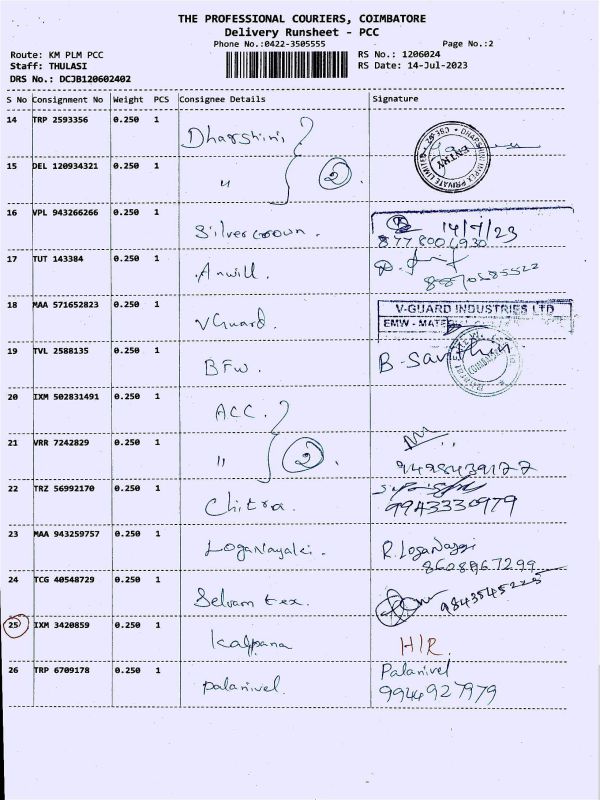 THE PROFESSIONAL COURIERS, COIMBATORE
Delivery Runsheet - PCC
Phone No.:0422-3505555
Page No.:2
Route: KM PLM PCC
RS No.: 1206024
Staff: THULASI
RS Date: 14-Jul-2023
DRS No.: DCJB120602402
S No Consignment No Weight PCS Consignee Details Signature
14 TRP 2593356 0.250 1 Dharshini
15 DEL 120934321 0.250 1 " 2
ENTRY
16 VPL 943266266 0.250 1 Silver crown. 14/7/23
17 TUT 143384 0.250 1 Anwill.
18 MAA 571652823 0.250 1 VGuard.
V-GUARD INDUSTRIES LTD
EMW - MATE
19 TVL 2588135 0.250 1 BFW.
20 IXM 502831491 0.250 1 ACC.
21 VRR 7242829 0.250 1 " 2.
22 TRZ 56992170 0.250 1 Chitra. 9943330979
23 MAA 943259757 0.250 1 LogaNayaki.
24 TCG 40548729 0.250 1 Selvam tex. 9843545225
25 IXM 3420859 0.250 1 Kalpana H/R.
26 TRP 6709178 0.250 1 palanivel. Palanivel
9944927979